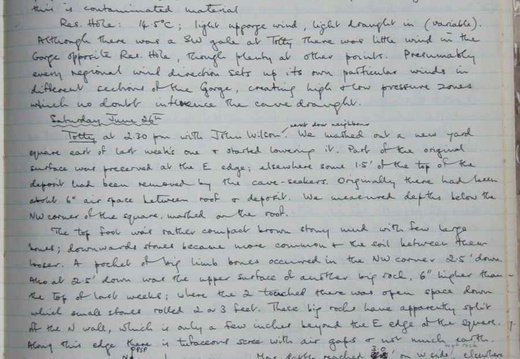 this is contaminated material
Res. Hole: 14.5°C; light upgorge wind, light draught in (variable).
Although there was a SW gale at Totty there was little wind in the
Gorge opposite Res. Hole, though plenty at other points. Presumably
every regional wind direction sets up its own particular winds in
different sections of the Gorge, creating high & low pressure zones
which no doubt influence the cave draught.
Saturday June 26th
new neighbour
Totty at 2.30 pm with John Wilson, We mashed out a new yard
square east of last week's one & started lowering it. Part of the original
surface was preserved at the E edge; elsewhere some 1.5' of the top of the
deposit had been removed by the cave-seekers. Originally there had been
about 6" air space between roof & deposit. We measured depths below the
NW corner of the square, marked on the roof.
The top foot was rather compact brown stony mud with few large
bones; downwards stones became more common & the soil between them
looser. A pocket of big limb bones occurred in the NW corner 2.5' down.
Also at 2.5' down was the upper surface of another big rock, 6" higher than
the top of last weeks; where the 2 touched there was open space down
which small stones rolled 2 or 3 feet. These big rocks have apparently split
off the N wall, which is only a few inches beyond the E edge of the square.
Along this edge there is tufaceous scree with air gaps & not much earth.
Max depth reached on W side, elsewhere